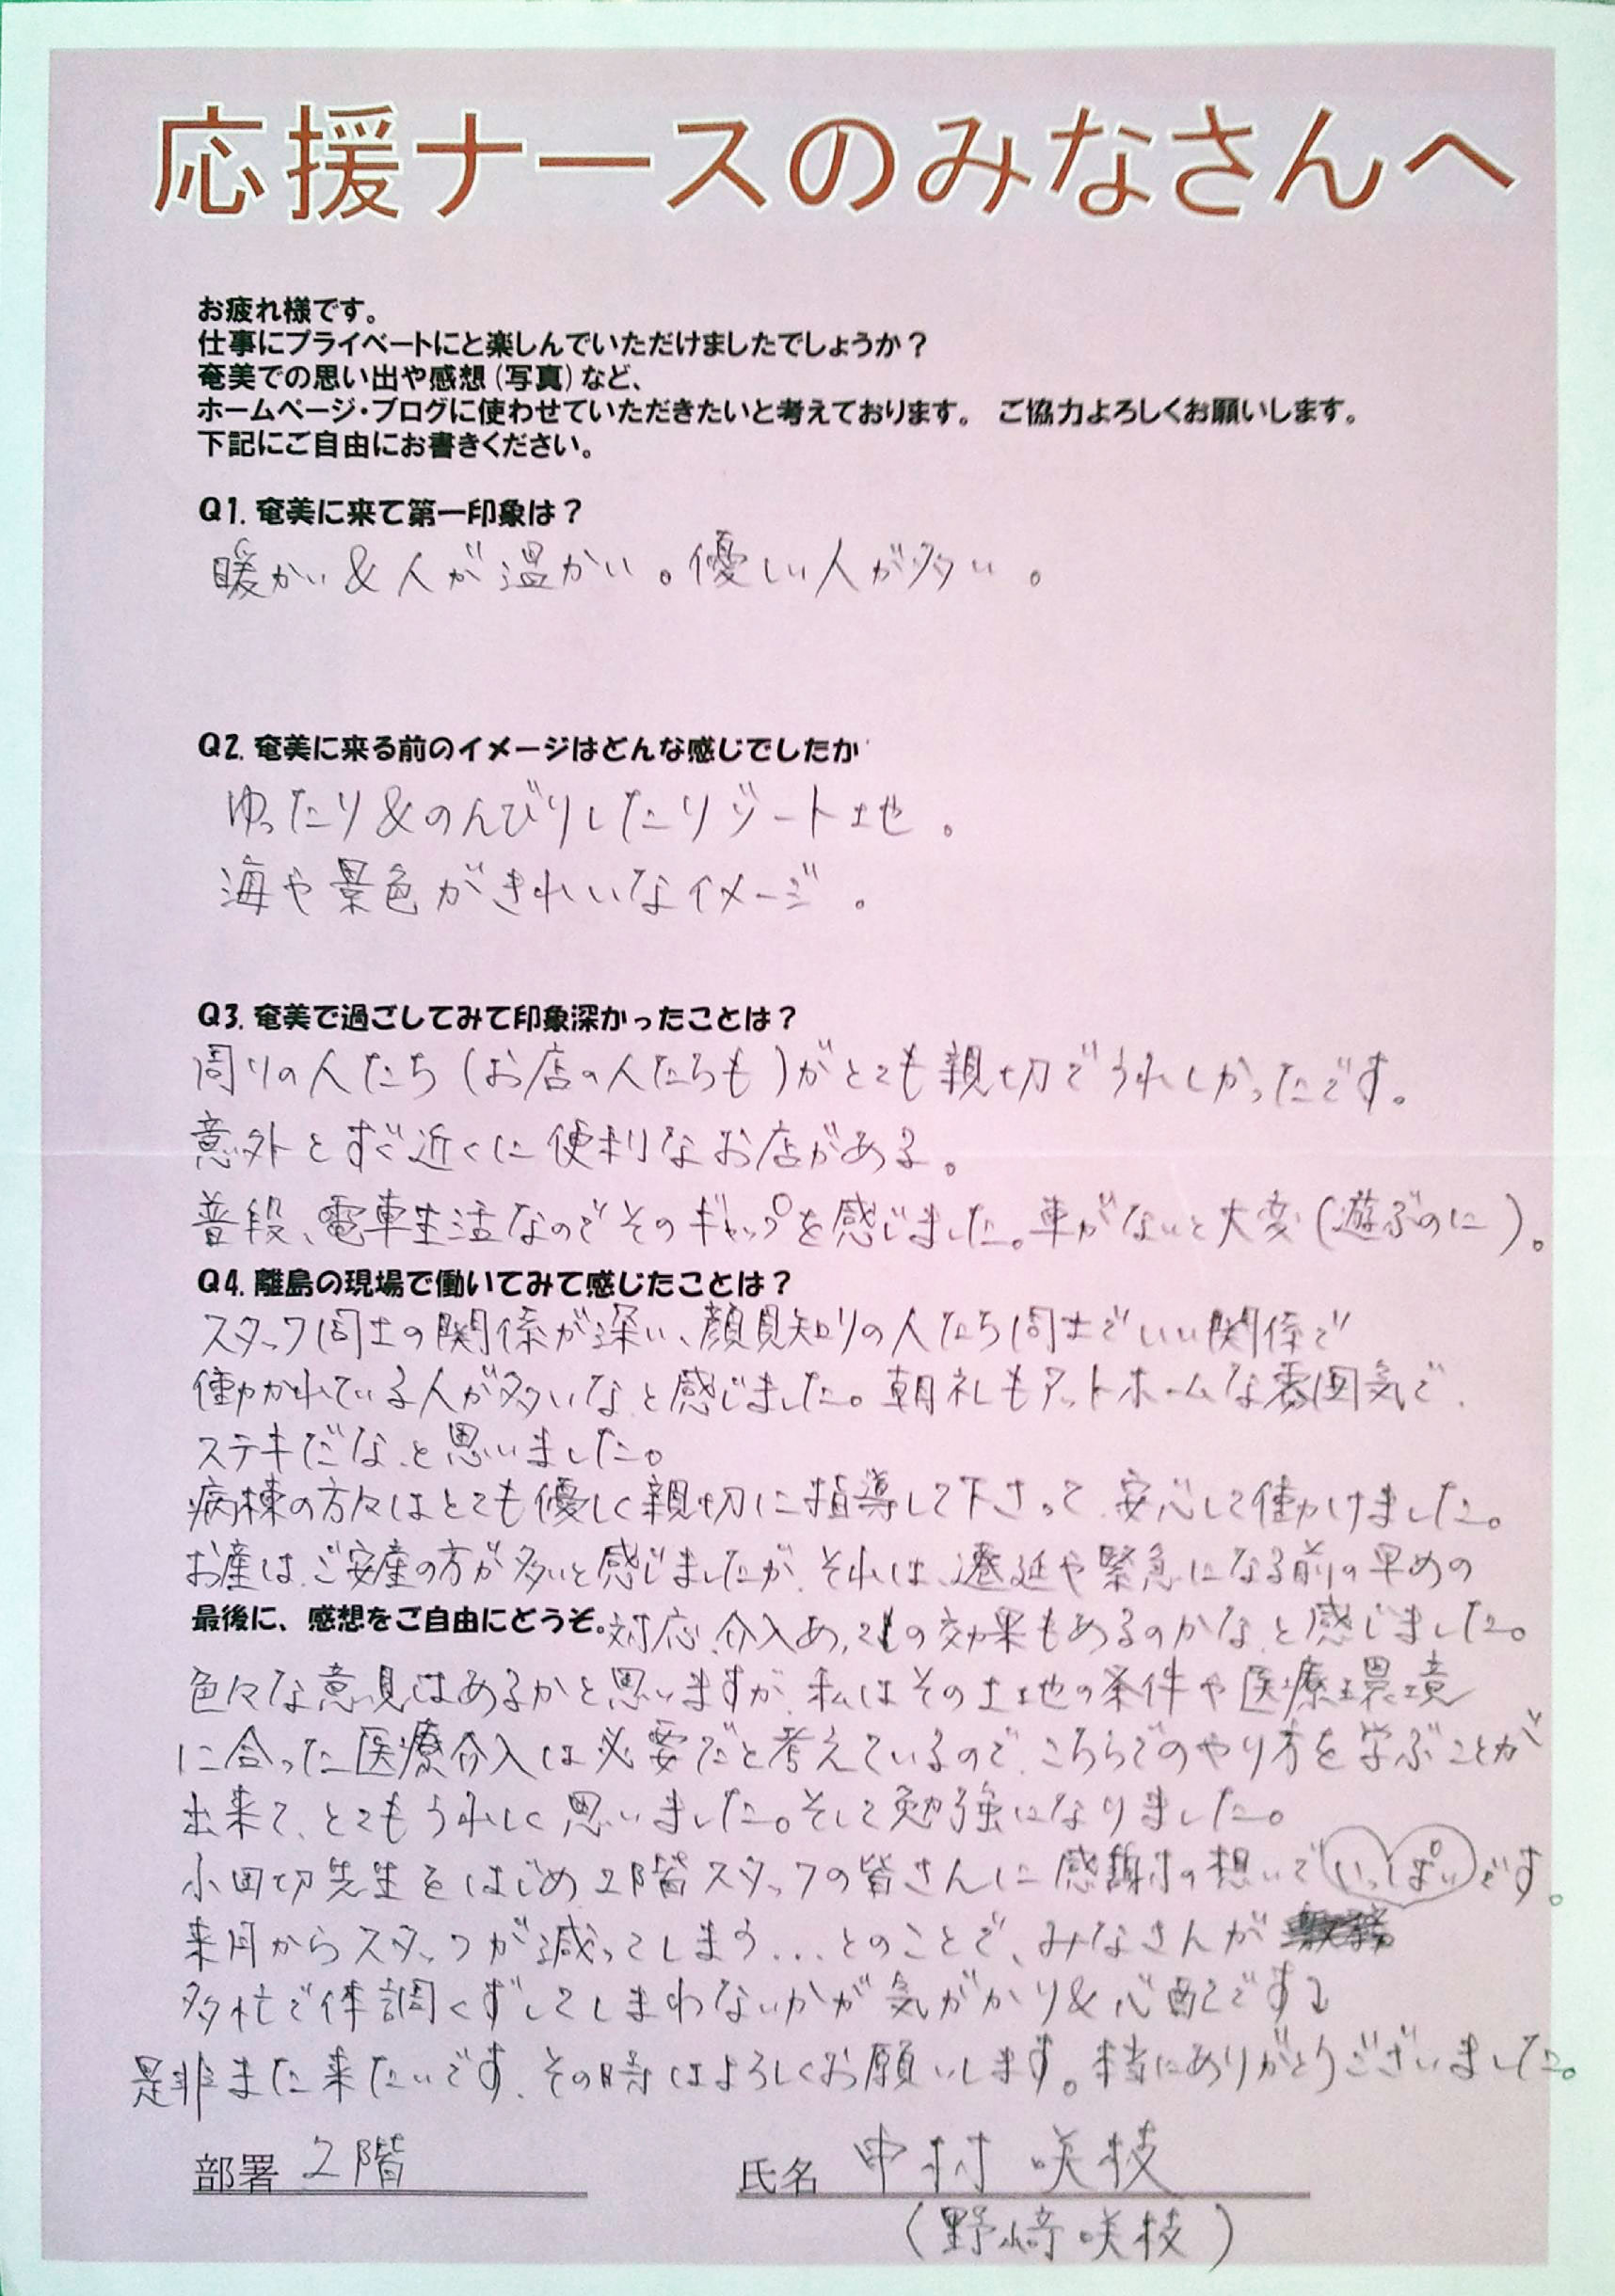 応援ナースのみなさんへ
お疲れ様です。
仕事にプライベートにと楽しんでいただけましたでしょうか？
奄美での思い出や感想(写真)など、
ホームページ・ブログに使わせていただきたいと考えております。 ご協力よろしくお願いします。
下記にご自由にお書きください。
Q1. 奄美に来て第一印象は？
暖かい&人が温かい。優しい人が多い。
Q2. 奄美に来る前のイメージはどんな感じでしたか
ゆったり&のんびりしたリゾート地。
海や景色がきれいなイメージ。
Q3. 奄美で過ごしてみて印象深かったことは？
周りの人たち(お店の人たちも)がとても親切でうれしかったです。
意外とすぐ近くに便利なお店がある。
普段、電車生活なのでそのギャップを感じました。車がないと大変(遊ぶのに)。
Q4. 離島の現場で働いてみて感じたことは？
スタッフ同士の関係が深い、顔見知りの人たち同士でいい関係で
働かれている人が多いな、と感じました。朝礼もアットホームな雰囲気で、
ステキだな、と思いました。
病棟の方々はとても優しく親切に指導して下さって、安心して働けました。
お産は、ご安産の方が多いと感じましたが、それは、遷延や緊急になる前の早めの
最後に、感想をご自由にどうぞ。対応、介入あってもの効果もあるのかな、と感じました。
色々な意見はあるかと思いますが、私はその土地の条件や医療環境
に合った医療介入は必要だと考えているので、こちらでのやり方を学ぶことが
出来て、とてもうれしく思いました。そして勉強になりました。
小田切先生をはじめ2階スタッフの皆さんに感謝の想いでいっぱいです。
来月からスタッフが減ってしまう…とのことで、みなさんが
多忙で体調くずしてしまわないかが気がかり&心配です
是非また来たいです、その時はよろしくお願いします。本当にありがとうございました。
部署 2階
氏名 中村 咲枝
(野﨑咲枝)